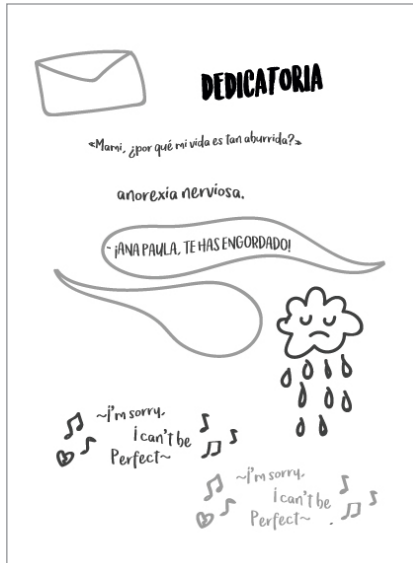 DEDICATORIA
«Mami, ¿por qué mi vida es tan aburrida?»
anorexia nerviosa.
- ¡ANA PAULA, TE HAS ENGORDADO!
~i'm sorry,
i can't be
Perfect~
~i'm sorry,
i can't be
Perfect~ .